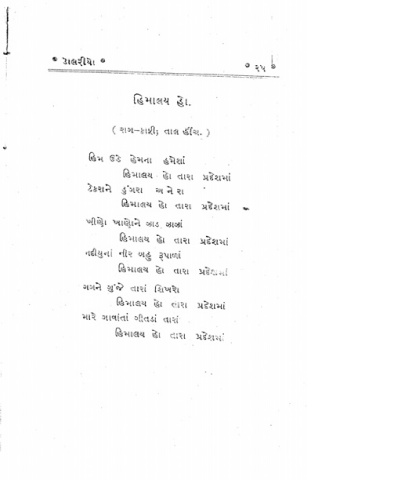 • ટાલરીયા •
• ૬૫ •
હિમાલય હો.
( રાગ-કાફી; તાલ હીંચ. )
હિમ ઉઠે હેમના હંમેશાં
હિમાલય હો તારા પ્રદેશમાં
ટેકરાને ડુંગરા અનેરા
હિમાલય હો તારા પ્રદેશમાં
ખીણો ખાણોને ઝાડ ઝાઝાં
હિમાલય હો તારા પ્રદેશમાં
નદીયુનાં નીર બહુ રૂપાળાં
હિમાલય હો તારા પ્રદેશમાં
ગગને ગુંજે તારાં શિખરો
હિમાલય હો તારા પ્રદેશમાં
મારે ગાવાંતાં ગીતડાં તારાં
હિમાલય હો તારા પ્રદેશમાં